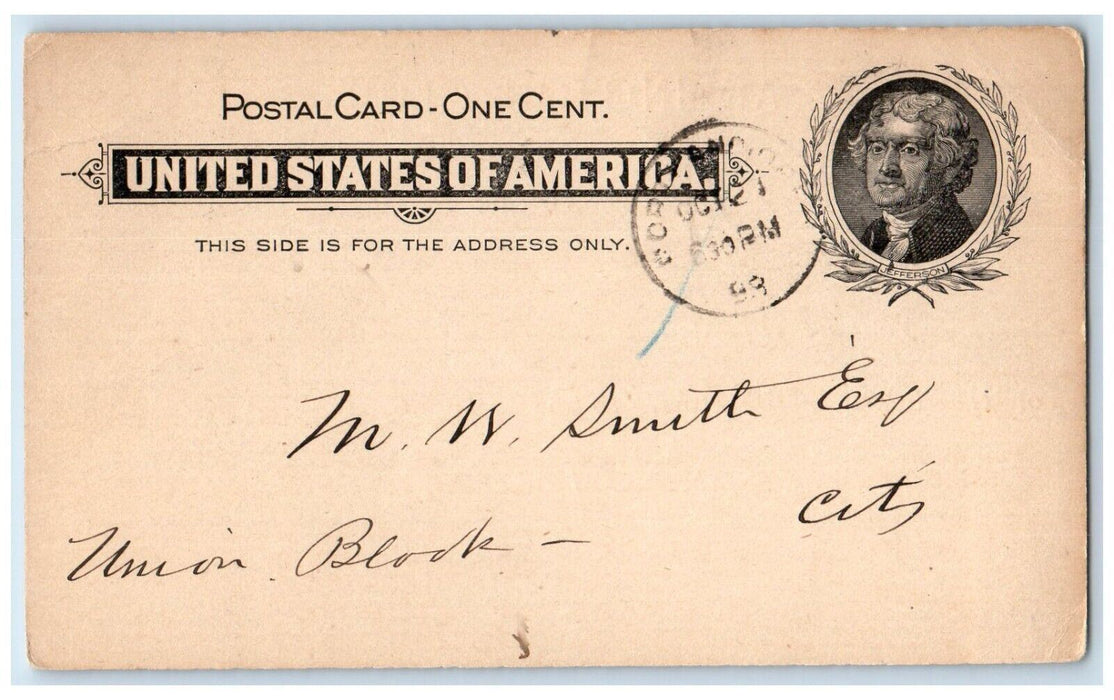 POSTAL CARD - ONE CENT.
UNITED STATES OF AMERICA.
THIS SIDE IS FOR THE ADDRESS ONLY.
OCT 21
630 PM
98
JEFFERSON
M. W. Smith Esq
City
Union Block —